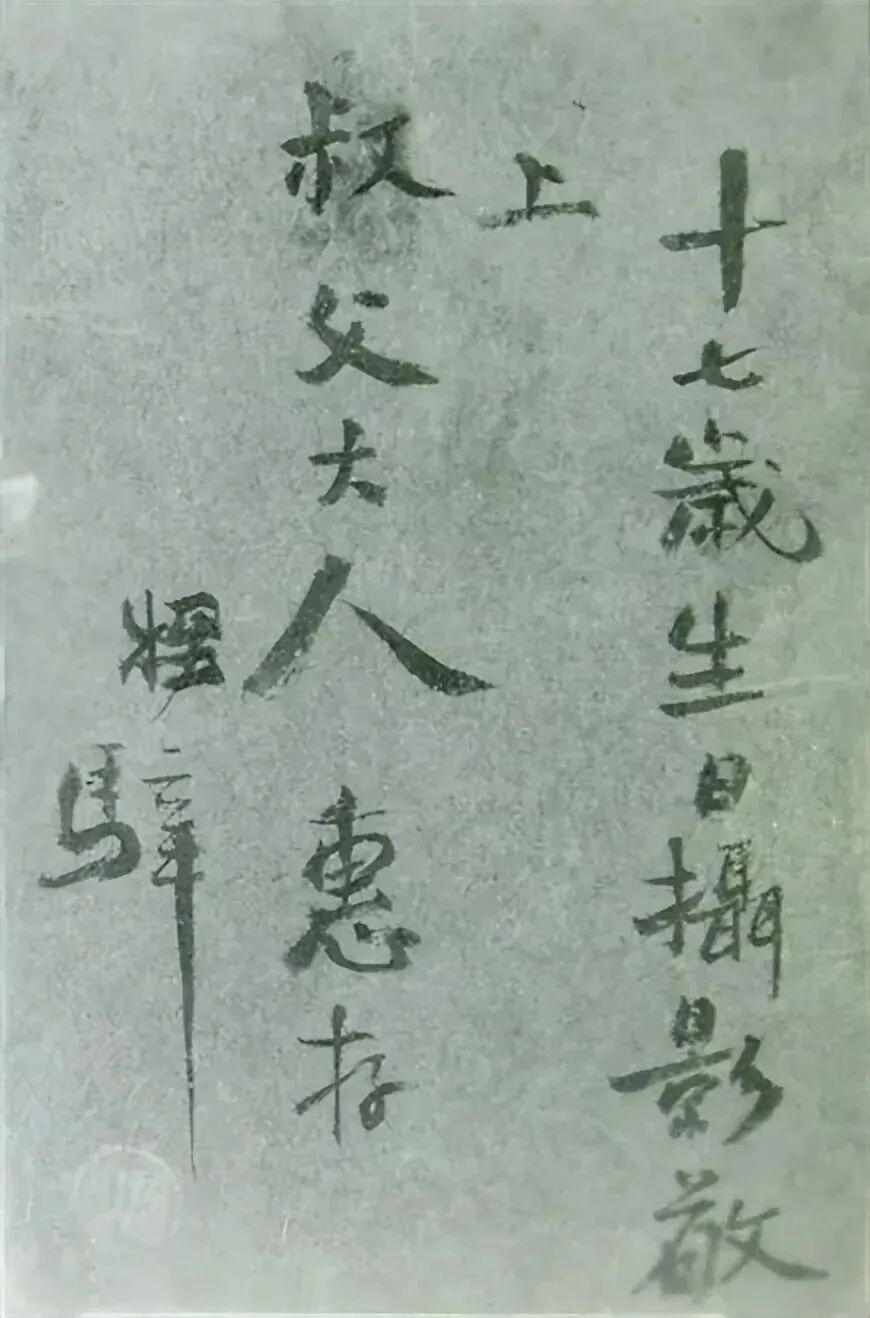 十七歲生日攝影敬
上
叔父大人惠存
騂